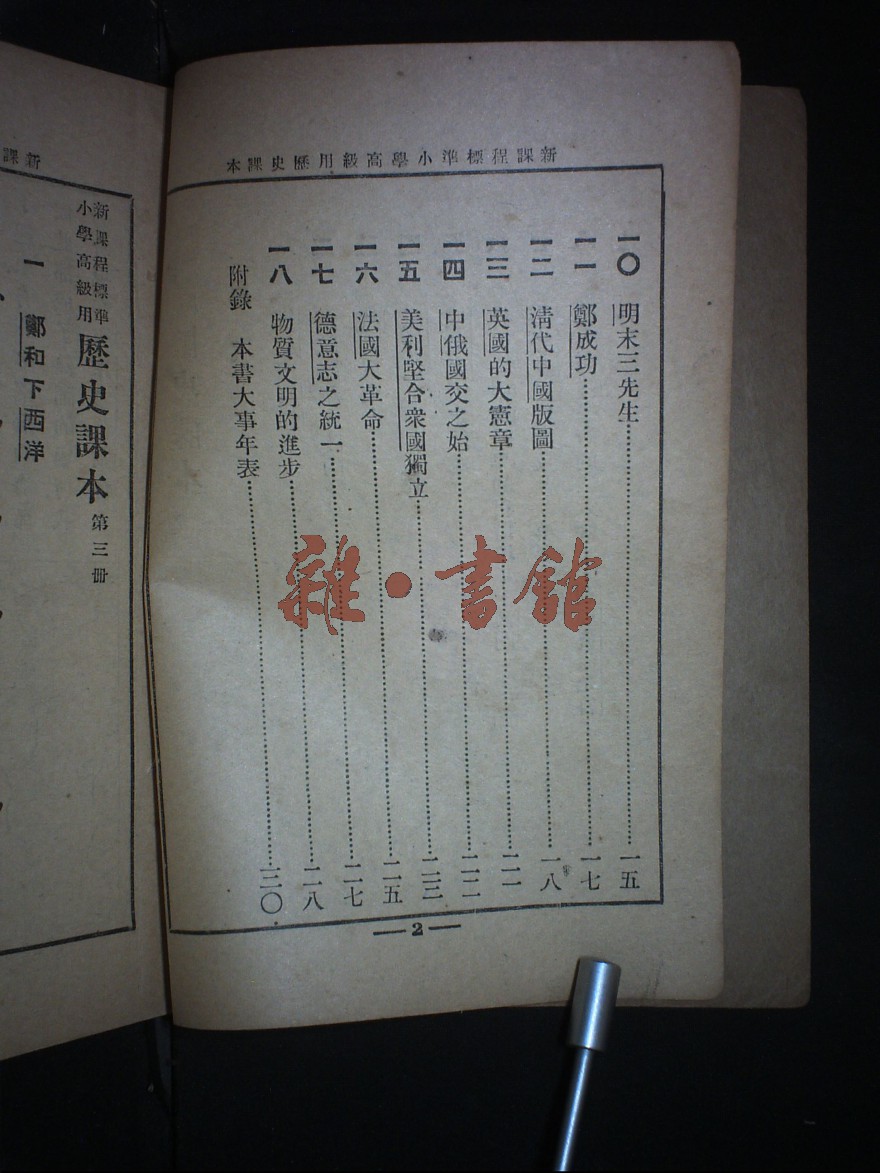 新課程標準小學高級用歷史課本
一〇 明末三先生 一五
一一 鄭成功 一七
一二 清代中國版圖 一八
一三 英國的大憲章 二一
一四 中俄國交之始 二二
一五 美利堅合衆國獨立 二三
一六 法國大革命 二五
一七 德意志之統一 二七
一八 物質文明的進步 二八
附錄 本書大事年表 三〇
—2—
雜·書館
新課
新課程標準
小學高級用
歷史課本 第三册
一 鄭和下西洋